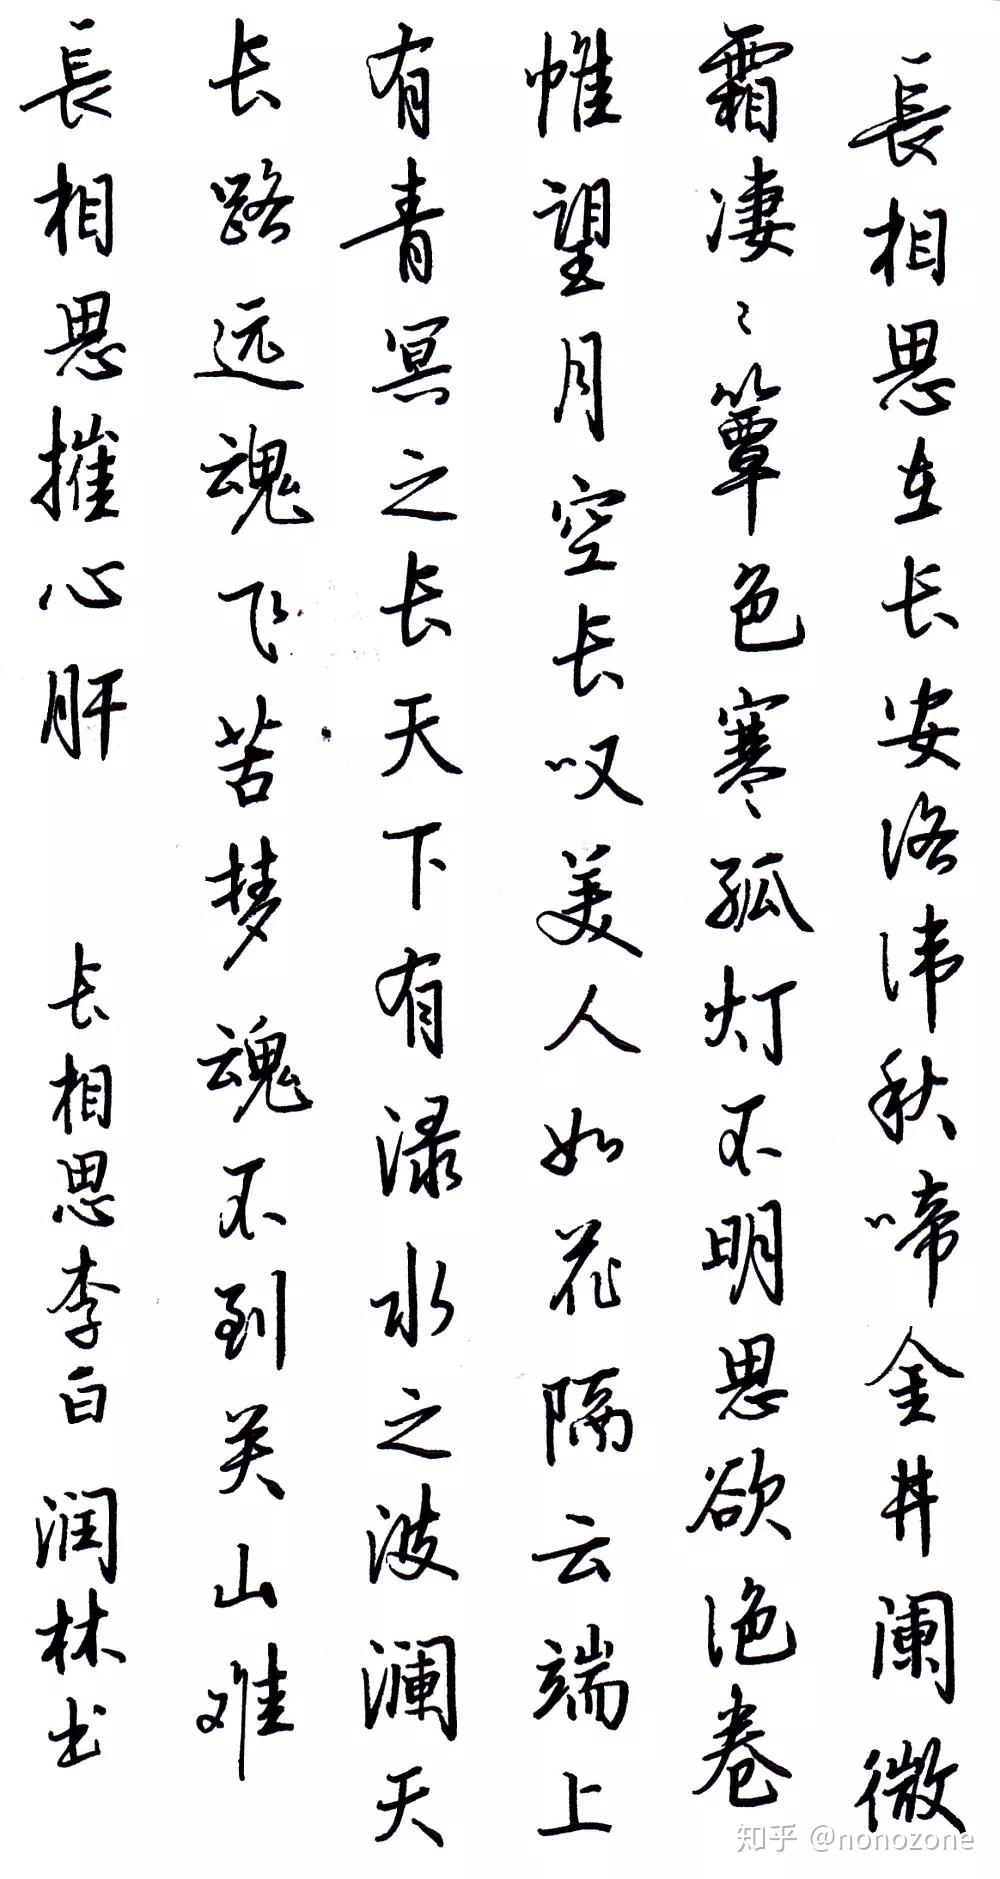 長相思在长安洛讳秋啼金井阑微
霜凄〻簟色寒孤灯不明思欲绝卷
帷望月空长叹美人如花隔云端上
有青冥之长天下有渌水之波澜天
长路远魂飞苦梦魂不到关山难
長相思摧心肝 长相思李白 润林书
知乎 @nonozone